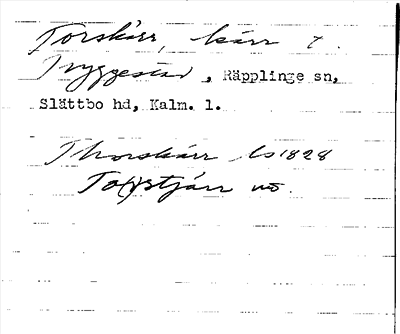 Torskärr, kärr t.
Tryggestad, Räpplinge sn,
Slättbo hd, Kalm. l.
Thorskärr ls 1828
To(r)stjärr